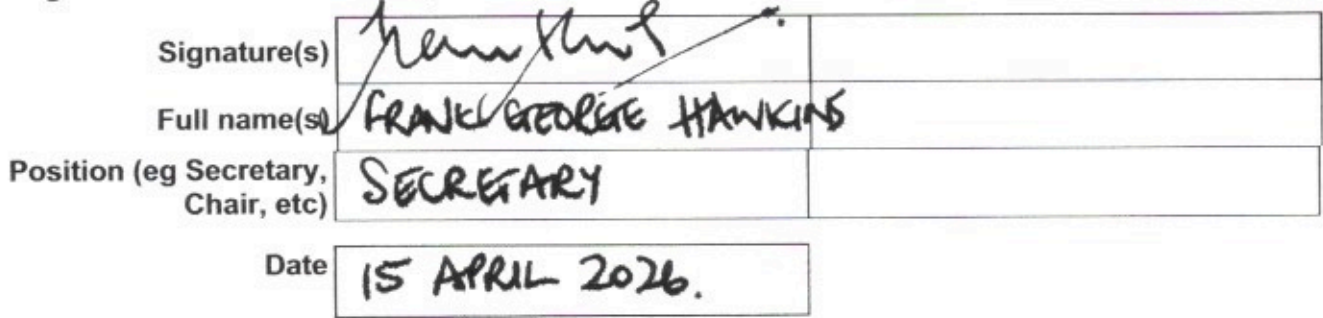 Signature(s)
Full name(s) FRANK GEORGE HAWKINS
Position (eg Secretary, SECRETARY
Chair, etc)
Date 15 APRIL 2026.